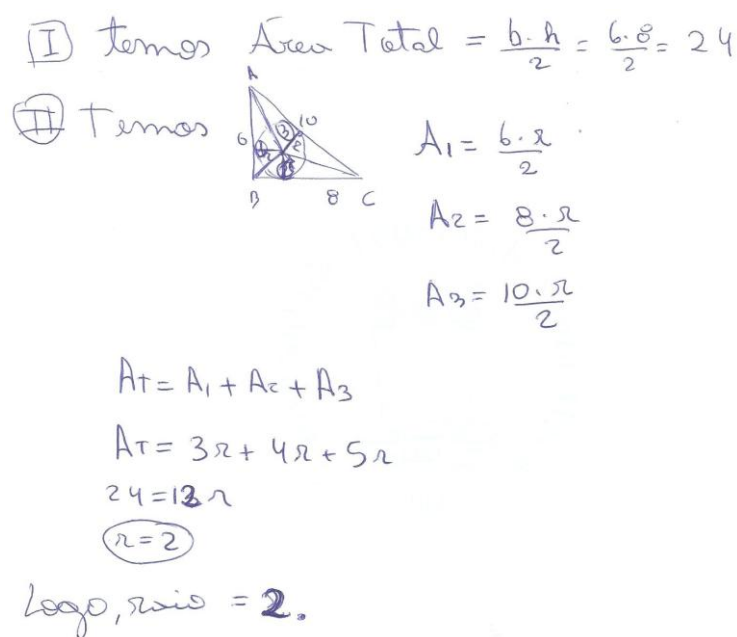 I temos Área Total = b.h/2 = 6.8/2 = 24
II Temos
A
6
10
3
1
2
r
B
8
C
A1 = 6.r/2
A2 = 8.r/2
A3 = 10.r/2
AT = A1 + A2 + A3
AT = 3r + 4r + 5r
24 = 12r
r = 2
Logo, raio = 2.